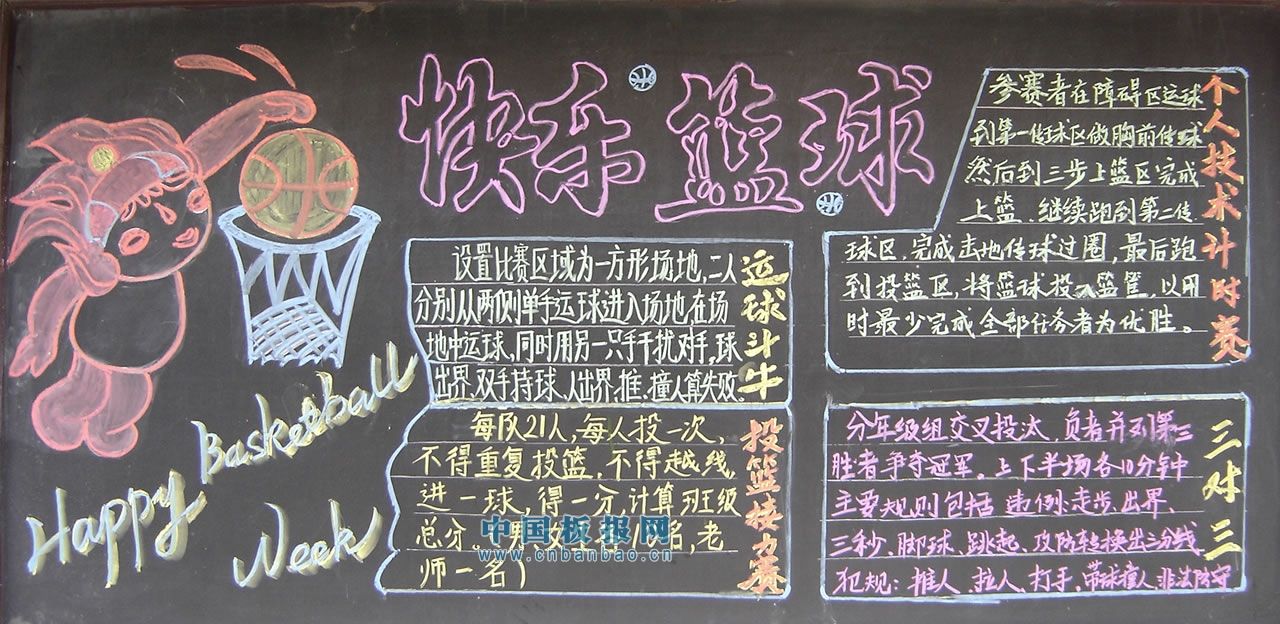 快乐篮球
Happy
Basketball
Week
运球斗牛
设置比赛区域为一方形场地,二人
分别从两侧单手运球进入场地在场
地中运球,同时用另一只手干扰对手,球
出界、双手持球、人出界、推、撞人算失败.
投篮接力赛
每队21人,每人投一次,
不得重复投篮,不得越线,
进一球,得一分,计算班级
总分.
名,老
师一名)
个人技术计时赛
参赛者在障碍区运球
到第一传球区做胸前传球
然后到三步上篮区完成
上篮.继续跑到第二传
球区,完成击地传球过圈,最后跑
到投篮区,将篮球投入篮筐,以用
时最少完成全部任务者为优胜。
三对三
分年级组交叉投汰,负者并列第三
胜者争夺冠军。上下半场各10分钟
主要规则包括 违例:走步、出界、
三秒、脚球、跳起、攻防转换出三分线
犯规:推人、拉人、打手、带球撞人、非法防守
中国板报网
www.cnbanbao.cn